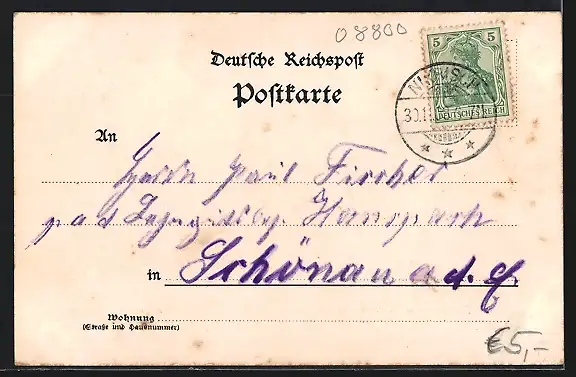 08800
Deutsche Reichspost
Postkarte
5 5
DEUTSCHES REICH
30.1
An
Herrn Paul Fischer
in Schönau a. d. E.
Wohnung
(Straße und Hausnummer)
€5,-